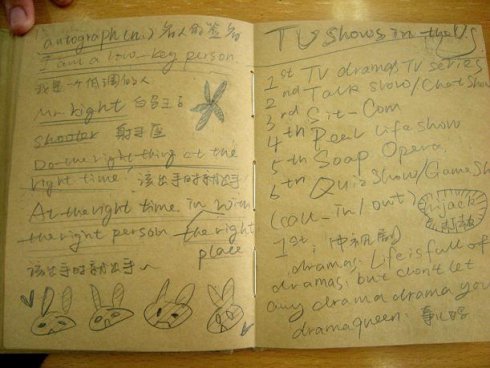 autograph (n.) 名人的签名
I am a low-key person
我是一个低调的人
Mr. Right 白马王子
shooter 射手座
Do the right thing at the
right time! 该出手时就出手!
At the right time in with
the right person the right
place
该出手时就出手~
TV shows in the US
1st TV dramas TV series
2nd Talk show/Chat Show
3rd Sit-Com
4th Real life show
5th Soap Opera
6th Quiz Show/Game Show
(call-in/out)
hijack
1st:
dramas. Life is full of
dramas. but don't let
any drama drama you
drama queen.